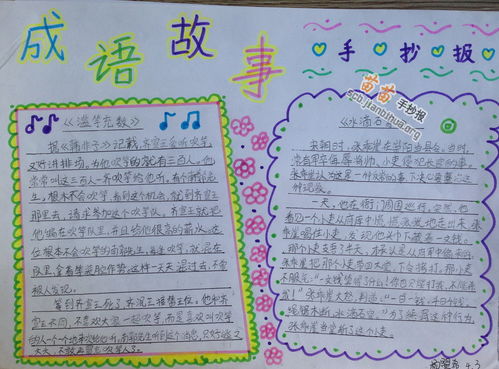 成语故事
手抄报
苗苗手抄报
scb.jianbihua.org
《滥竽充数》
据《韩非子》记载,齐宣王爱听吹竽,
又好讲排场,为他吹竽的就有三百人。他
常常叫这三百人一齐吹竽给他听。有个南郭先
生,根本不会吹竽,看到这个机会,就到齐宣王
那里去,请求参加这个吹竽队。齐宣王就把
他编在吹竽队里,并且给他很高的薪水。这
位根本不会吹竽的南郭先生,每逢吹竽,就混在
队里,拿着竽装腔作势。这样一天天混过去,不会
被人发现。
等到齐宣王死了,齐湣王接替王位,他和齐
宣王不同,不喜欢大家一起吹竽,而是喜欢叫吹竽
的人一个一个
《水滴石穿》
宋朝时,张乖崖在崇阳当县令。当时,
常有军卒侮辱将帅、小吏侵犯长官的事。
张乖崖认为这是一种反常的事,下决心要整治这
种现象。
一天,他在衙门周围巡行。突然,他
看见一个小吏从府库中
崖喝住小吏,发现他头巾下藏着一文钱。
那个小吏支吾了半天,才承认是从府库中偷来的。
张乖崖把那个小吏带回大堂,下令拷打。那小吏
不服气:“一文钱算得了什么!你也只能打我,不能杀
我!”张乖崖大怒,判道:“一日一钱,千日千钱,
绳锯木断,水滴石穿。”为了惩罚这种行为,
张乖崖当堂斩了这个小吏。
4.3